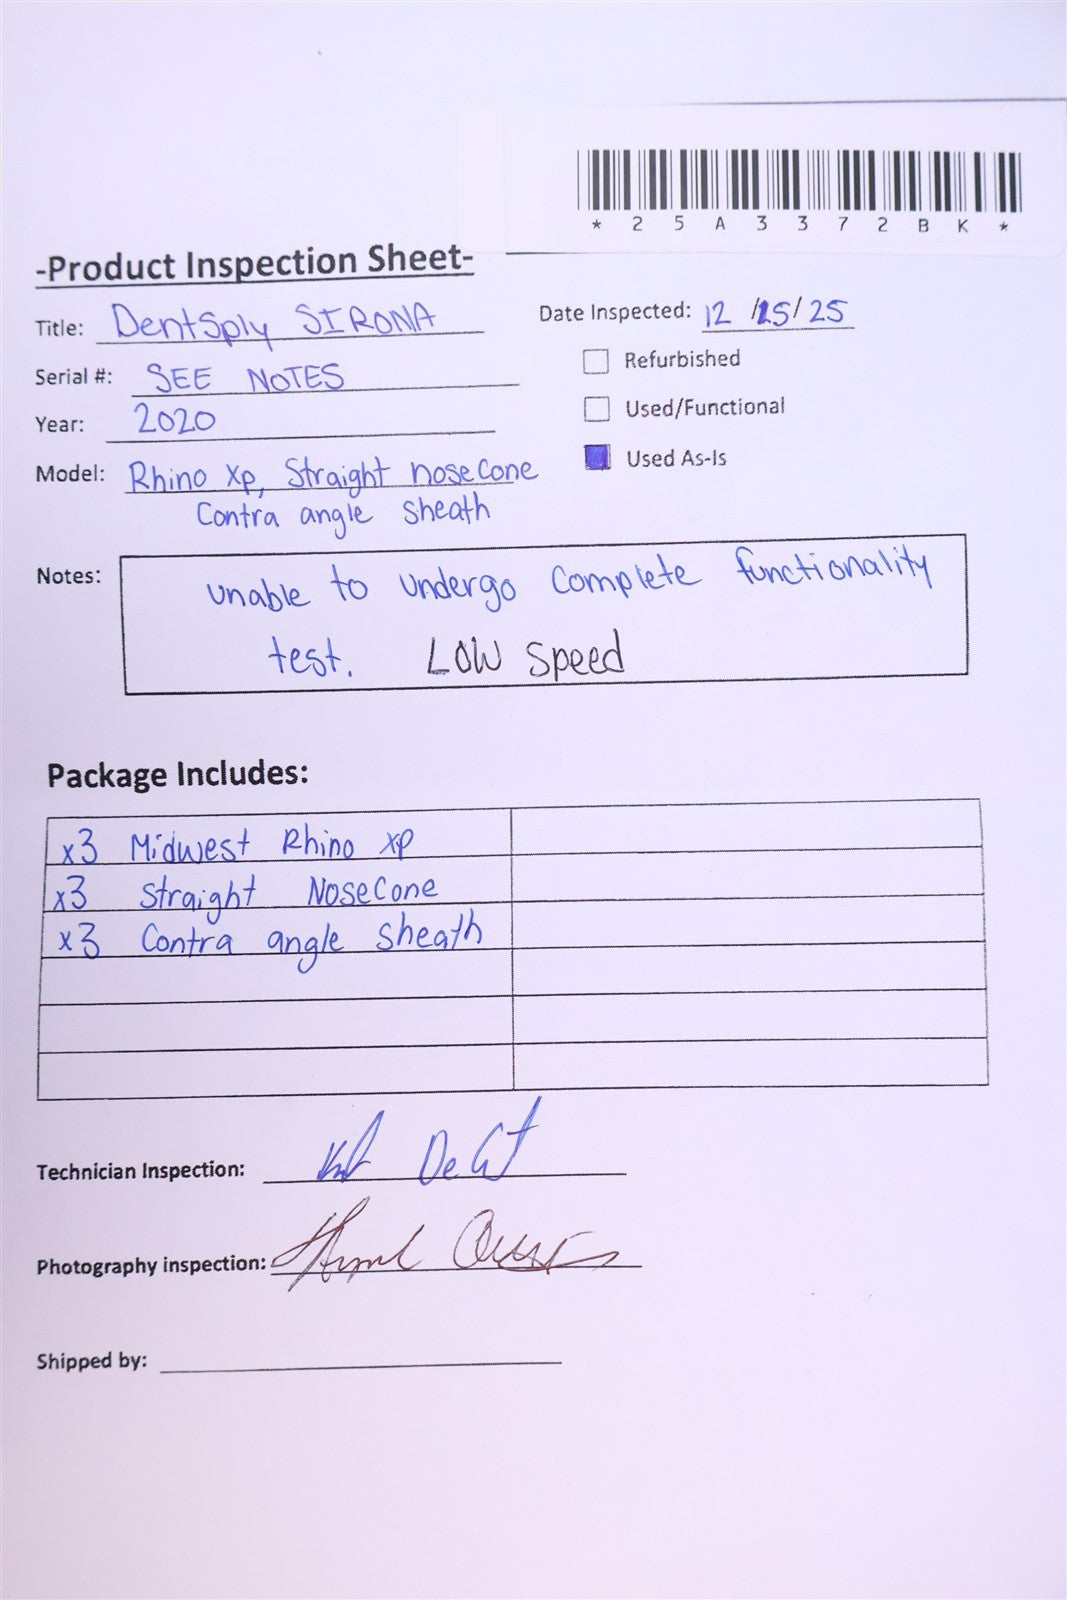 * 2 5 A 3 3 7 2 B K *
-Product Inspection Sheet-
Title: Dentsply SIRONA
Date Inspected: 12 /15/ 25
Serial #: SEE NOTES
Refurbished
Year: 2020
Used/Functional
Model: Rhino Xp, Straight noseCone
Used As-Is
Contra angle sheath
Notes: unable to undergo Complete functionality
test. LOW Speed
Package Includes:
x3 Midwest Rhino xp
x3 Straight NoseCone
x3 Contra angle Sheath
Technician Inspection:
Photography inspection:
Shipped by: